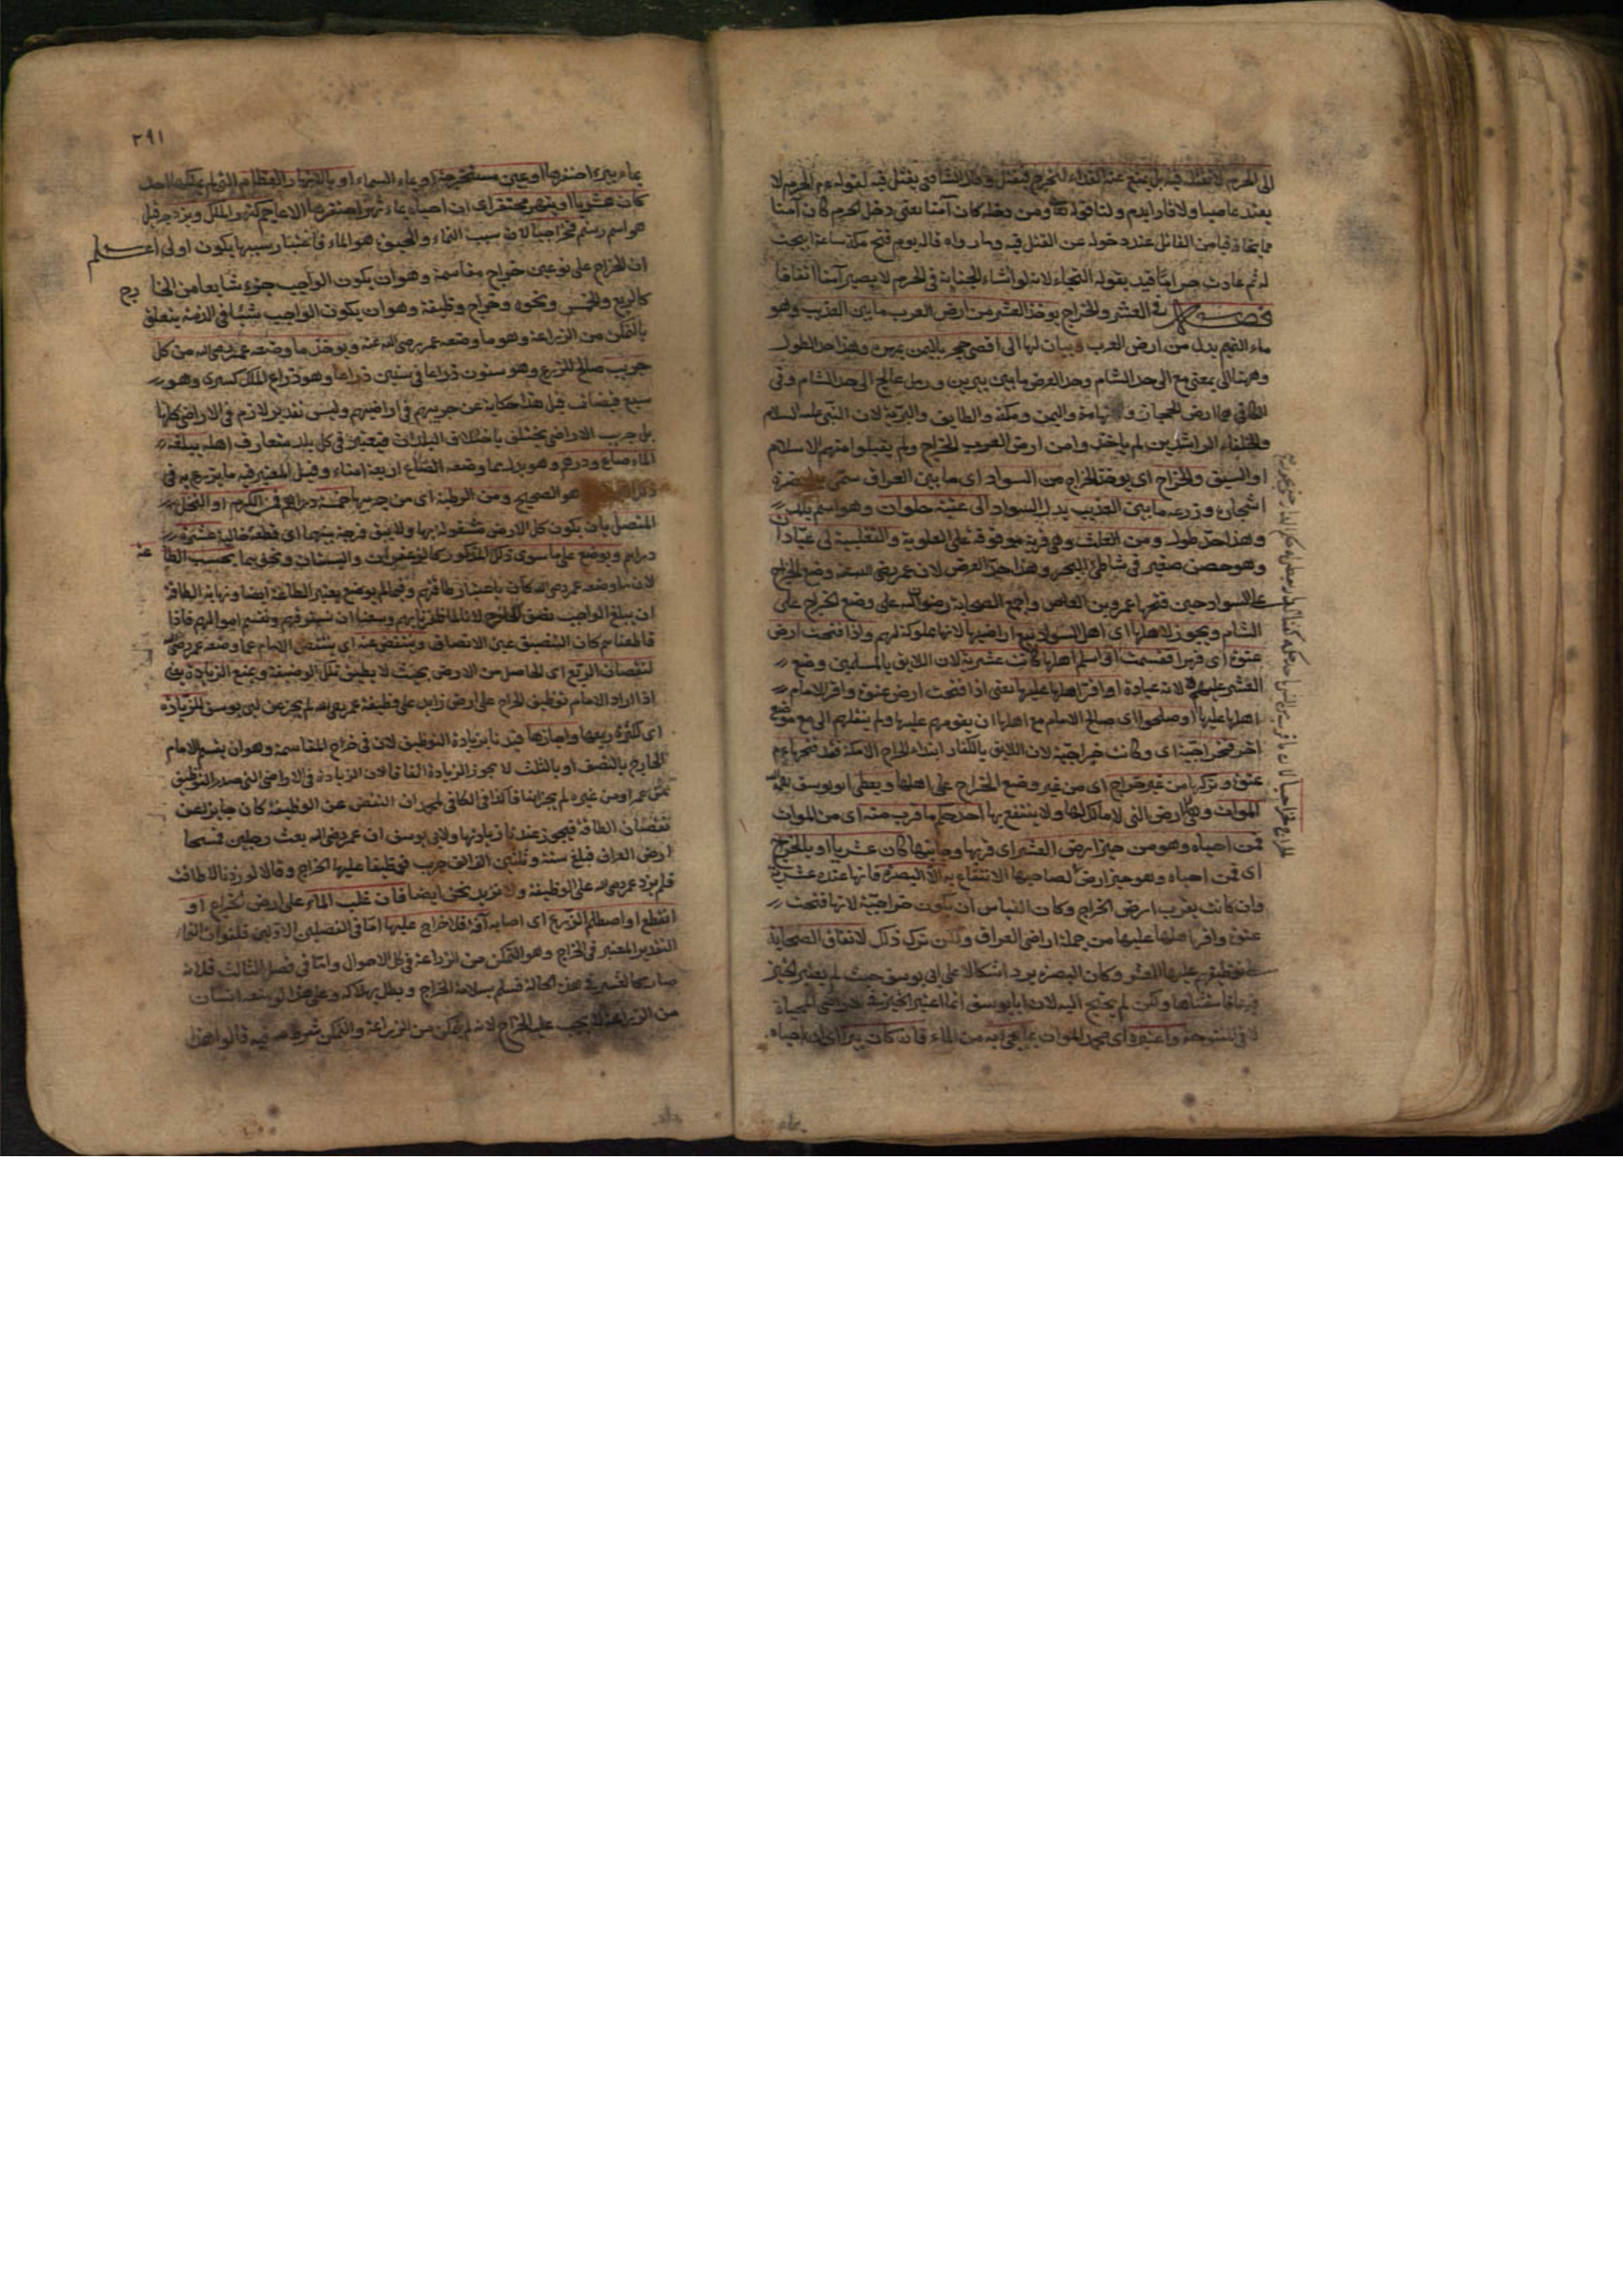 الى الحرم لا يقتل فيه بل يمنع عنه الغذاء ليخرج فيقتل وقال الشافعى يقتل فيه لقوله عم الحرم لا
يعيذ عاصيا ولا فارا بدم ولنا قوله تعالى ومن دخله كان آمنا يعنى دخل الحرم كان آمنا
مما يخافه فيأمن القاتل عند دخوله عن القتل فيه وما رواه قاله يوم فتح مكة ساعة ابيحت
له ثم عادت حراما قيد بقوله التجاء لانه لو انشاء الجناية فى الحرم لا يصير آمنا اتفاقا
فصل فى العشر والخراج يوخذ العشر من ارض العرب ما بين العذيب وهو
ماء التميم بدل من ارض العرب وبيان لها الى اقصى حجر باليمن بمهرة وهذا حد الطول
وههنا الى بمعنى مع الى حد الشام وحد العرض ما بين يبرين ورمل عالج الى حد الشام وفى
الكافى هى ارض الحجاز وتهامة واليمن ومكة والطايف والبرية لان النبى عليه السلام
والخلفاء الراشدين لم ياخذوا من ارض العرب الخراج ولم يقبلوا منهم الا الاسلام
او السيف والخراج اى يوخذ الخراج من السواد اى ما بين العراق سمى به لخضرة
اشجاره وزرعه ما بين العذيب بدل السواد الى عقبة حلوان وهو اسم بلدن
وهذا حد طوله ومن العلث وهى قرية موقوفة على العلوية والثعلبية الى عبادان
وهو حصن صغير فى شاطئ البحر وهذا حد العرض لان عمر رضى الله عنه وضع الخراج
على السواد حين فتحها عمرو بن العاص واجمع الصحابة رضوان الله على وضع الخراج على
الشام ويجوز لاهلها اى اهل السواد بيع اراضيها لانها مملوكة لهم واذا فتحت ارض
عنوة اى قهرا فقسمت او اسلم اهلها كانت عشرية لان اللايق بالمسلمين وضع
العشر عليهم لانه عبادة او اقر اهلها عليها يعنى اذا فتحت ارض عنوة واقر الامام
اهلها عليها او صلحوا اى صالح الامام مع اهلها ان يقومهم عليها ولم ينقلهم الى موضع
آخر فخراجية اى وكانت خراجية لان اللايق بالكفار ابتداء الخراج الا مكة فقد فتحها عم
عنوة وتركها من غير خراج اى من غير وضع الخراج على اهلها ويعطى ابو يوسف رحمه الله
الموات وهى ارض التى لا مالك لها ولا ينتفع بها احد حكم ما قرب منه اى من الموات
فمن احياه وهو من حيز ارض العشر اى قربها وجانبها كان عشريا او بالخراج
اى فمن احياه وهو حيز ارض لصاحبها الانتفاع به الا البصرة فانها عنده عشرية
وان كانت بقرب ارض الخراج وكان القياس ان يكون خراجية لانها فتحت
عنوة واقر اهلها عليها من جملة اراضى العراق ولكن ترك ذلك لاتفاق الصحابة
على توظيفهم عليها العشر وكان البصرة يورد اشكالا على ابى يوسف حيث لم يعتبر الحيز
فيها فاستثناها ولكن لم يحتج اليه لان ابا يوسف انما اعتبر الحيز فى الاراضى المحياة
لا فى المفتوحة واعتبره اى محمد الموات بما يحيى به من الماء فان كان بير اى ان احياه
بماء
٢٩١
بماء بير احتفرها او عين مستخرجة او بماء السماء او بالانهار العظام التى لم يملكها احد
كان عشريا او بنهر محتفر اى ان احياه بماء نهر احتفرها الاعاجم كنهر الملك ويزدجرد قيل
هو اسم رستم فخراجيا لان سبب النماء والحيوة هو الماء فاعتبار سببها يكون اولى اعلم
ان الخراج على نوعين خراج مقاسمة وهو ان يكون الواجب جزء شايعا من الخارج
كالربع والخمس ونحوه وخراج وظيفة وهو ان يكون الواجب شيئا فى الذمة يتعلق
بالتمكن من الزراعة وهو ما وضعه عمر رضى الله عنه ويوخذ ما وضعه عمر رضى الله من كل
جريب صالح للزرع وهو ستون ذراعا فى ستين ذراعا وهو ذراع الملك كسرى وهو
سبع قبضات قيل هذا حكاية عن جريبهم فى اراضيهم وليس تقدير لازم فى الاراضى كلها
بل جريب الاراضى يختلف باختلاف البلدان فيعتبر فى كل بلد متعارف اهله يبلغه
الماء صاع ودرهم وهو بدل مما وضعه الصاع اربعة امناء وقيل المعتبر فيه ما يزرع به فى
هو الصحيح ومن الرطبة اى من جريبها خمسة دراهم ومن الكرم او النخل
المتصل بان يكون كل الارض مشغولة بها ولا يبقى فرجة بينهما اى قطعة خالية عشرة
دراهم ويوضع على ما سوى ذلك المذكور كالزعفران والبستان ونحوهما بحسب الطاقة
لان ما وضعه عمر رضى الله كان باعتبار طاقتهم وفيما لم يوضع يعتبر الطاقة ايضا ونهاية الطاقة
ان يبلغ الواجب نصف الخارج لانا لما ظفرنا بهم وسعنا ان نسترقهم ونقسم اموالهم فاذا
قاطعناهم كان التنصيف عين الانصاف وينقص عنه اى ينقص الامام عما وضعه عمر رضى الله
لنقصان الريع اى الحاصل من الارض بحيث لا يطيق تلك الوضيفة ويمنع الزيادة يعنى
اذا اراد الامام توظيف الخراج على ارض زايد على وظيفة عمر رضى الله لم يجز عن ابى يوسف للزيادة
اى لكثرة ريعها واجازها قيدنا بزيادة التوظيف لان فى خراج المقاسمة وهو ان يقسم الامام
الخارج بالنصف او بالثلث لا يجوز الزيادة اتفاقا لان الزيادة فى الاراضى التى صدر التوظيف
من عمر او من غيره لم يجز اتفاقا كذا فى الكافى لمحمد ان النقص عن الوظيفة كان جايز لعن
نقصان الطاقة فيجوز عند زيادتها ولابى يوسف ان عمر رضى الله بعث رجلين فمسحا
ارض العراق فبلغ ستة وثلثين الف الف جريب فوظفا عليها الخراج وقالا لو زدنا لاطاقت
فلم يزد عمر رضى الله على الوظيفة ولا نزيد نحن ايضا فان غلب الماء على ارض الخراج او
انقطع او اصطلم الزرع اى اصابه آفة فلا خراج عليها اما فى الفصلين الاولين فلفوات النماء
التقديرى المعتبر فى الخراج وهو التمكن من الزراعة فى كل الاحوال واما فى فصل الثالث فلانه
فى هذه الحالة فسلم بسلامة الخراج وبطل بهلاكه وعلى هذا لو منعه انسان
من الزراعة لا يجب عليه الخراج لانه لم يتمكن من الزراعة والتمكن شرط فيه قالوا هذا